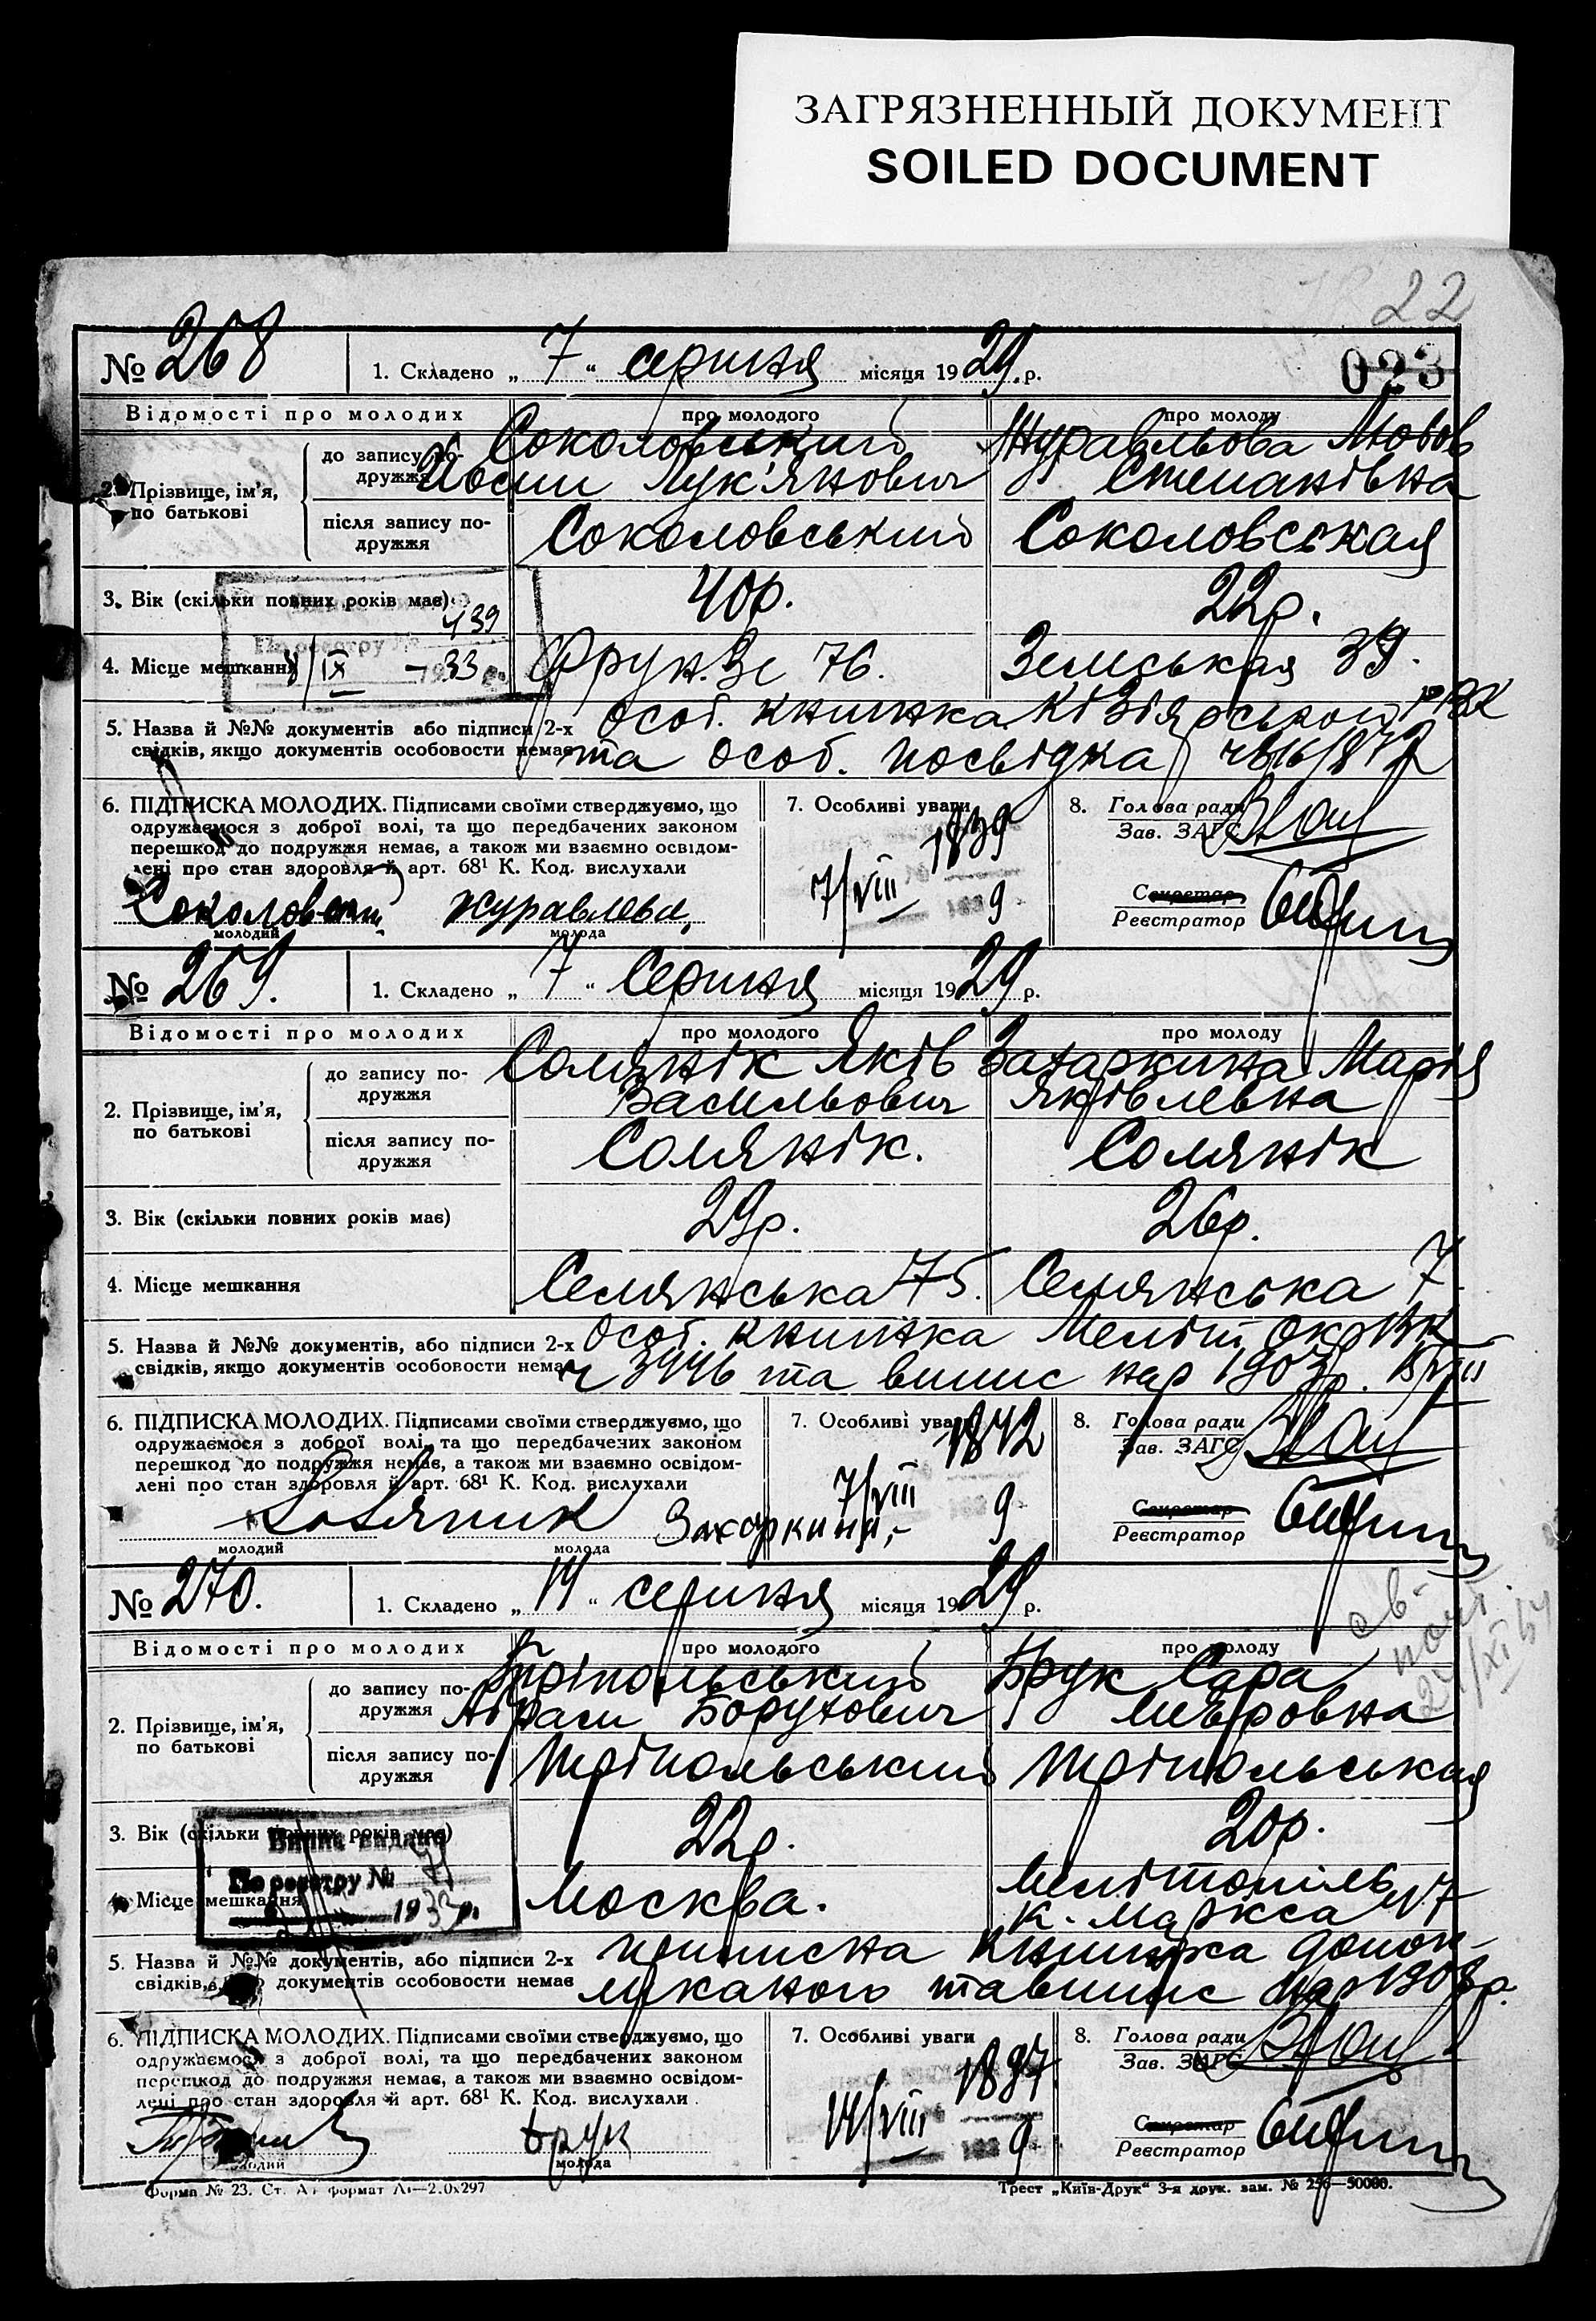 ЗАГРЯЗНЕННЫЙ ДОКУМЕНТ
SOILED DOCUMENT
22
023
№ 268
1. Складено „ 7 “ серпня місяця 1929 р.
Відомості про молодих
про молодого
про молоду
2. Прізвище, ім’я, по батькові
до запису подружжя
Соколовський
Йосип Лук'янович
Журавльова Любов
Степанівна
після запису подружжя
Соколовський
Соколовськая
3. Вік (скільки повних років має)
40р.
22р.
439
По реєстру №
IX – 33
4. Місце мешкання
Фрунзе 76.
Земськая 39.
5. Назва й №№ документів або підписи 2-х
свідків, якщо документів особовости немає
особ. книжка Кізіярськой РВК
та особ. посвідка
6. ПІДПИСКА МОЛОДИХ. Підписами своїми стверджуємо, що
одружаємося з доброї волі, та що передбачених законом
перешкод до подружжя немає, а також ми взаємно освідом-
лені про стан здоровля й арт. 68¹ К. Код. вислухали
Соколовский
молодий
Журавлева
молода
7. Особливі уваги
1839
7/VIII 9
8. Голова ради
Зав. ЗАГС
Секретар
Реєстратор
№ 269.
1. Складено „ 7 “ Серпня місяця 1929 р.
Відомості про молодих
про молодого
про молоду
2. Прізвище, ім’я, по батькові
до запису подружжя
Солянік Яків
Васильович
Захаркина Марія
Яківлевна
після запису подружжя
Солянік.
Солянік
3. Вік (скільки повних років має)
29р.
26р.
4. Місце мешкання
Селянська 75.
Селянська 7
5. Назва й №№ документів, або підписи 2-х
свідків, якщо документів особовости немає
особ. книжка Меліт ОкрВК
ч 3446 та випис нар 1903р.
6. ПІДПИСКА МОЛОДИХ. Підписами своїми стверджуємо, що
одружаємося з доброї волі, та що передбачених законом
перешкод до подружжя немає, а також ми взаємно освідом-
лені про стан здоровля й арт. 68¹ К. Код. вислухали
Соляник
молодий
Захаркина
молода
7. Особливі уваги
1842
7/VIII 9
8. Голова ради
Зав. ЗАГС
Секретар
Реєстратор
№ 270.
1. Складено „ 14 “ серпня місяця 1929 р.
Відомості про молодих
про молодого
про молоду
2. Прізвище, ім’я, по батькові
до запису подружжя
Тріпольський
Абрам Борухович
Брук Сара
Меєровна
після запису подружжя
Тріпольський
Тріпольськая
3. Вік (скільки повних років має)
22р.
20р.
Випис видано
По реєстру №
1933р.
4. Місце мешкання
Москва.
Мелітопіль
К. Маркса 47
5. Назва й №№ документів, або підписи 2-х
свідків, якщо документів особовости немає
приписна книжка
та випис нар 1908р.
6. ПІДПИСКА МОЛОДИХ. Підписами своїми стверджуємо, що
одружаємося з доброї волі, та що передбачених законом
перешкод до подружжя немає, а також ми взаємно освідом-
лені про стан здоровля й арт. 68¹ К. Код. вислухали
молодий
Брук
молода
7. Особливі уваги
1897
14/VIII 9
8. Голова ради
Зав. ЗАГС
Секретар
Реєстратор
Форма № 23. Ст. А, формат А₁—2.0х297
Трест „Київ-Друк“ 3-я друк. зам. № 256—50000.